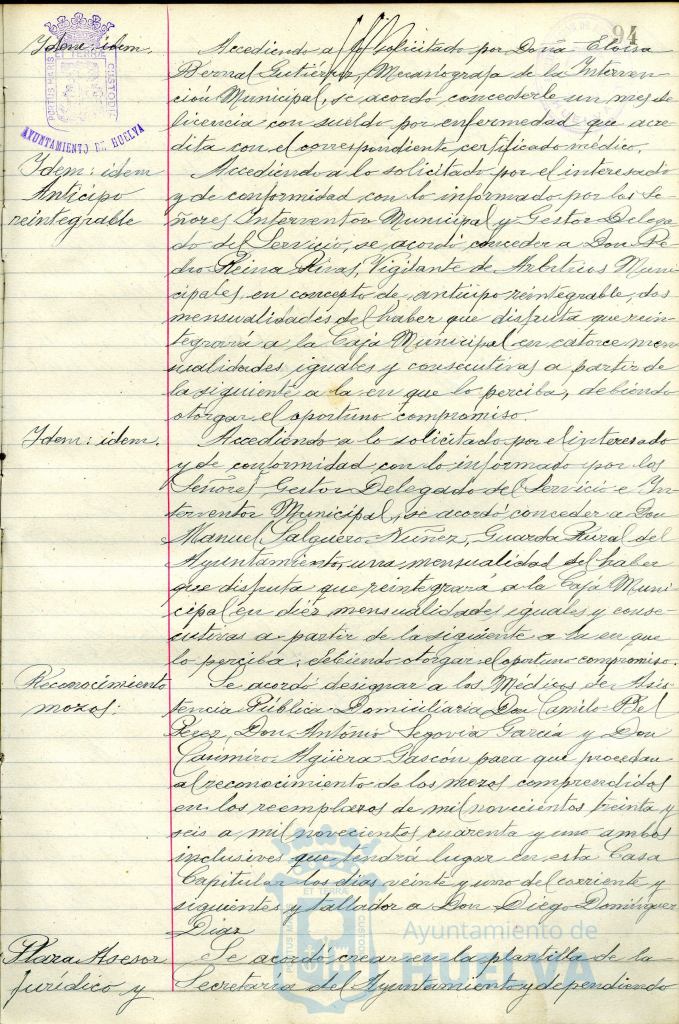 94
Idem: idem.
Accediendo a lo solicitado por Doña Eloisa
Bernal Gutiérrez, Mecanografa de la Interven-
ción Municipal, se acordó concederle un mes de
licencia con sueldo por enfermedad que acre-
dita con el correspondiente certificado médico.
PORTUS MARIS ET TERRAE CUSTODIA
AYUNTAMIENTO DE HUELVA
Idem: idem
Anticipo
reintegrable
Accediendo a lo solicitado por el interesado
y de conformidad con lo informado por los Se-
ñores Interventor Municipal y Gestor Delega-
do del Servicio, se acordó conceder a Don Pe-
dro Reina Rivas, Vigilante de Arbitrios Muni-
cipales, en concepto de anticipo reintegrable, dos
mensualidades del haber que disfruta que rein-
tegrará a la Caja Municipal en catorce men-
sualidades iguales y consecutivas a partir de
la siguiente a la en que lo perciba, debiendo
otorgar el oportuno compromiso.
Idem: idem.
Accediendo a lo solicitado por el interesado
y de conformidad con lo informado por los
Señores Gestor Delegado del Servicio e In-
terventor Municipal, se acordó conceder a Don
Manuel Salguero Núñez, Guarda Rural del
Ayuntamiento, una mensualidad del haber
que disfruta que reintegrará a la Caja Muni-
cipal en diez mensualidades iguales y conse-
cutivas a partir de la siguiente a la en que
lo perciba, debiendo otorgar el oportuno compromiso.
Reconocimiento
mozos:
Se acordó designar a los Médicos de Asis-
tencia Pública Domiciliaria Don Camilo Bel
Pérez, Don Antonio Segovia García y Don
Casimiro Agüera Gascón para que procedan
al reconocimiento de los mozos comprendidos
en los reemplazos de mil novecientos treinta y
seis a mil novecientos cuarenta y uno ambos
inclusives que tendrá lugar en esta Casa
Capitular los días veinte y uno del corriente y
siguientes y tallador a Don Diego Domínguez
Díaz
Plaza Asesor
Jurídico y
Se acordó crear en la plantilla de la
Secretaria del Ayuntamiento y dependiendo
PORTUS MARIS ET TERRAE CUSTODIA
Ayuntamiento de
HUELVA